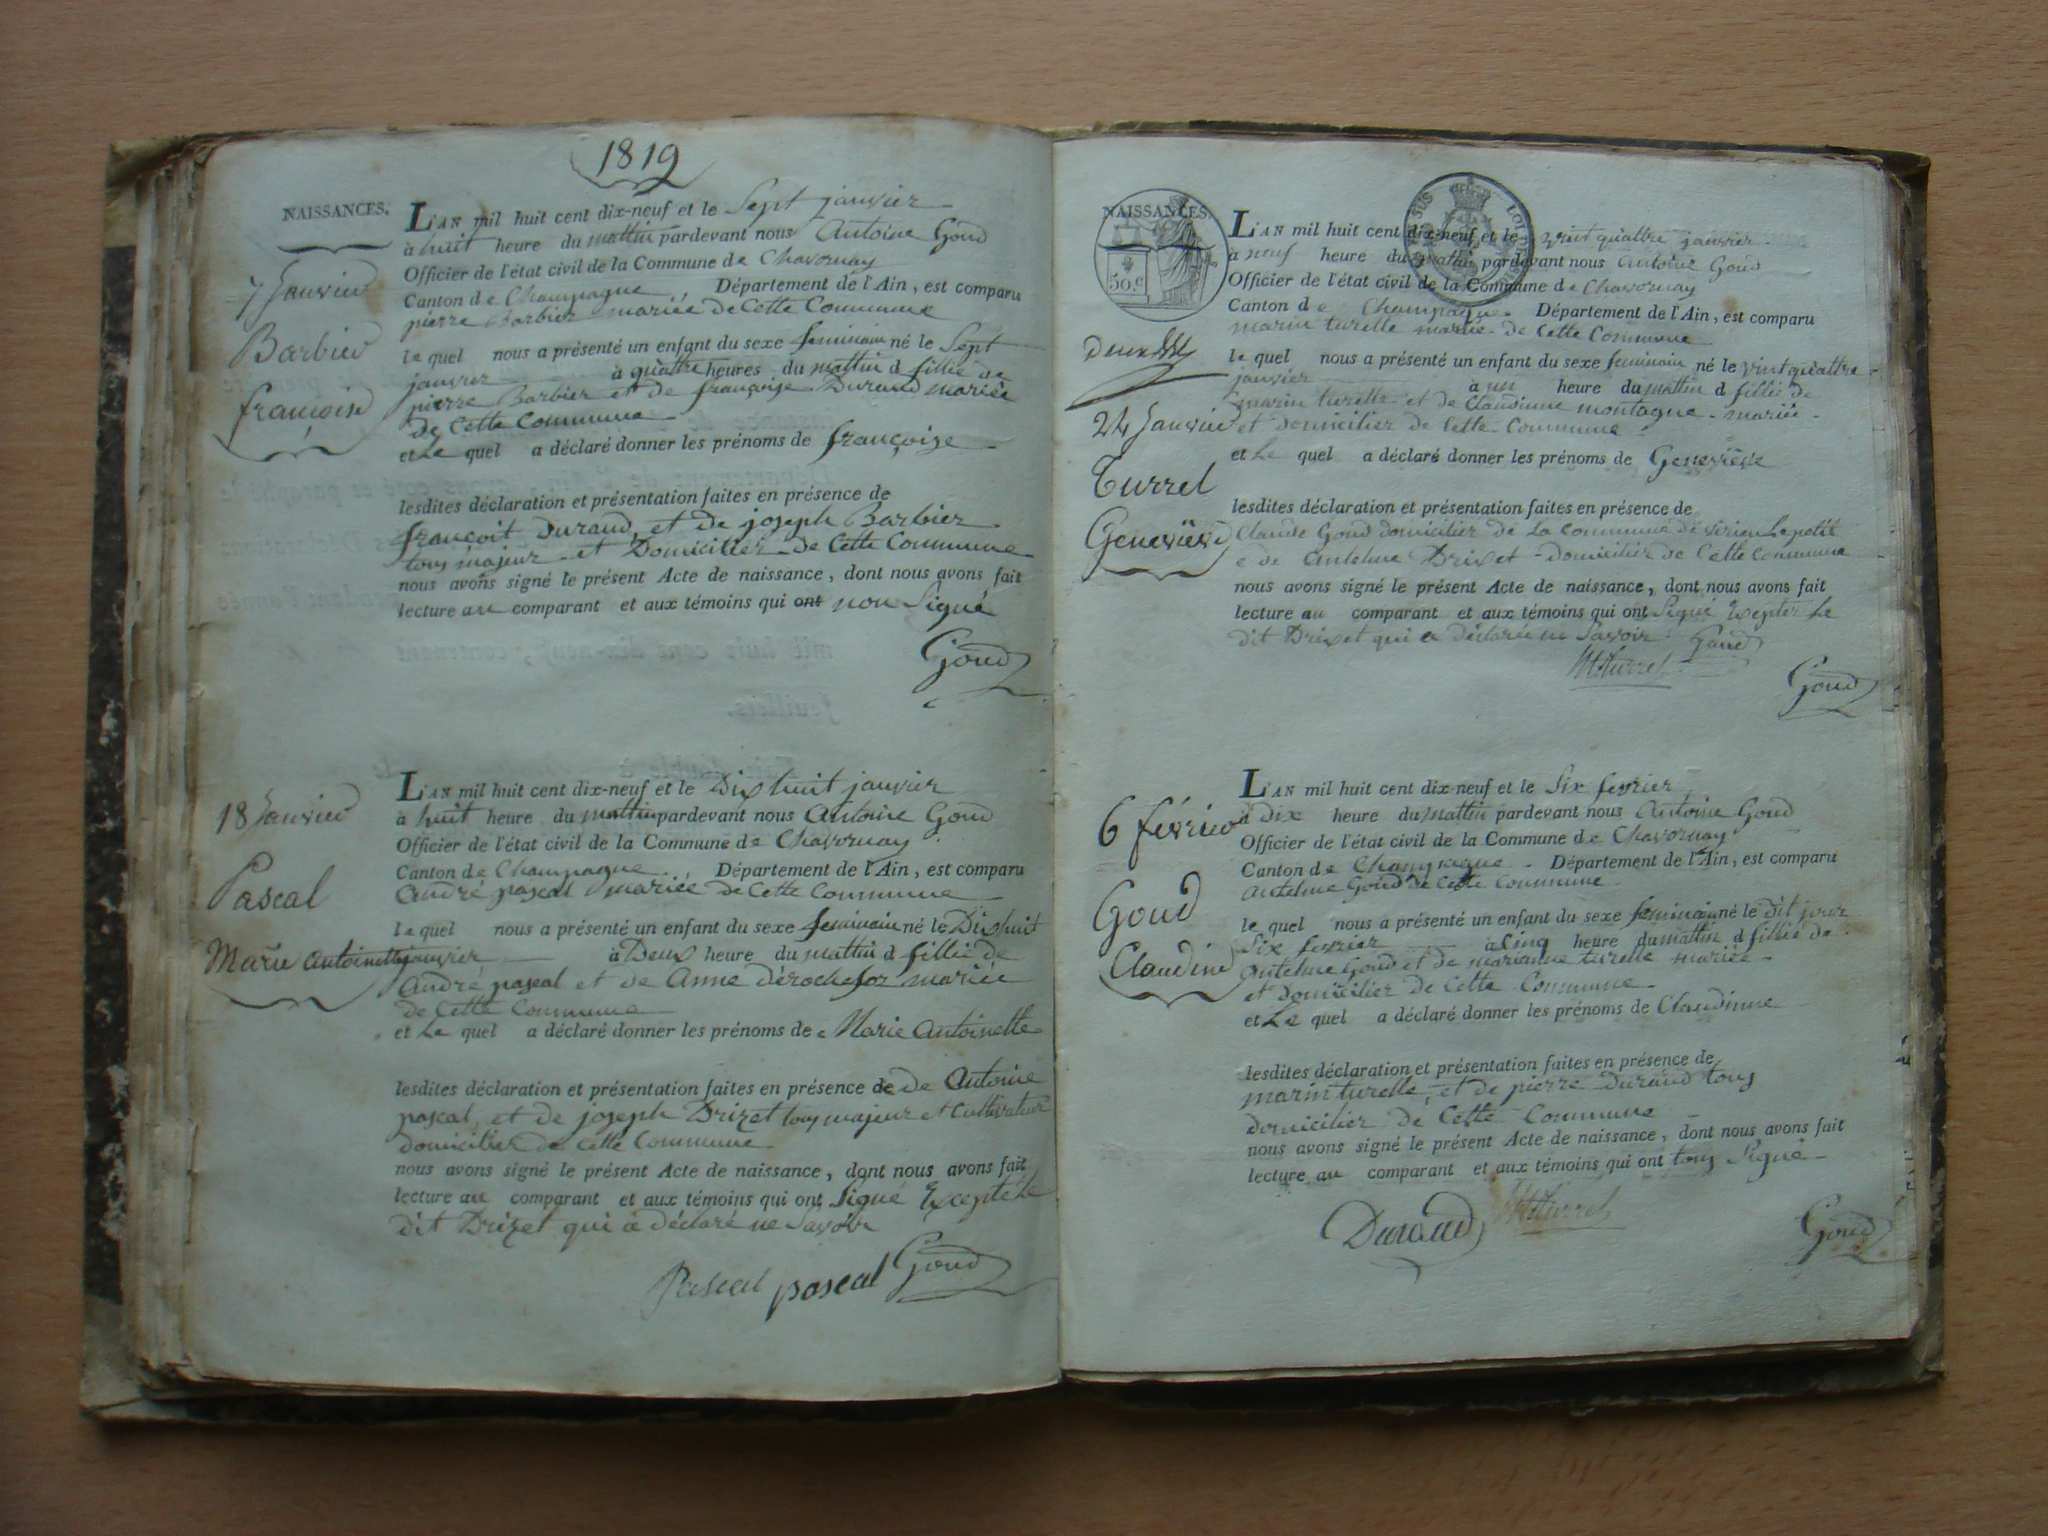 1819
NAISSANCES.
L'AN mil huit cent dix-neuf et le Sept janvier
à huit heure du mattin pardevant nous Antoine Goud
Officier de l'état civil de la Commune de Chavornay
Canton de Champagne, Département de l'Ain, est comparu
pierre Barbier mariée de Cette Commune
le quel nous a présenté un enfant du sexe feminain né le Sept
janvier à quattre heures du mattin d fillie de
pierre Barbier et de françoise Durand mariée
de Cette Commune
et Le quel a déclaré donner les prénoms de françoise
lesdites déclaration et présentation faites en présence de
françoit Durand, et de joseph Barbier
tous majeur et Domicilier de Cette Commune
nous avons signé le présent Acte de naissance, dont nous avons fait
lecture au comparant et aux témoins qui ont non Signé
Goud
7 Janvier
Barbier
françoise
L'AN mil huit cent dix-neuf et le Dix huit janvier
à huit heure du mattin pardevant nous Antoine Goud
Officier de l'état civil de la Commune de Chavornay
Canton de Champagne. Département de l'Ain, est comparu
André pascal mariée de Cette Commune
le quel nous a présenté un enfant du sexe feminain né le Dix huit
janvier à Deux heure du mattin d fillie de
André pascal et de Anne dérochefor mariée
de Cette Commune
et Le quel a déclaré donner les prénoms de Marie Antoinette
lesdites déclaration et présentation faites en présence de de Antoine
pascal, et de joseph Drizet tous majeur et Cultivateur
domicilier de Cette Commune
nous avons signé le présent Acte de naissance, dont nous avons fait
lecture au comparant et aux témoins qui ont Signé Excepté le
dit Drizet qui a déclaré ne Savoir
Pascal pascal Goud
18 Janvier
Pascal
Marie Antoinette
NAISSANCES.
50.c
L'AN mil huit cent dix-neuf et le vint quattre janvier
à neuf heure du mattin pardevant nous Antoine Goud
Officier de l'état civil de la Commune de Chavornay
Canton de Champagne. Département de l'Ain, est comparu
marin turelle mariée de Cette Commune
le quel nous a présenté un enfant du sexe feminain né le vint quattre
janvier à un heure du mattin d fillie de
marin turelle et de Claudinne montagne mariée
et domicilier de Cette Commune
et Le quel a déclaré donner les prénoms de Geneviève
lesdites déclaration et présentation faites en présence de
Claude Goud domicilier de La Commune de virieu Lepetit
e de Antelme Drizet domicilier de Cette Commune
nous avons signé le présent Acte de naissance, dont nous avons fait
lecture au comparant et aux témoins qui ont Signé Exepter Le
dit Drizet qui a déclarée ne Savoir Goud
Mturrel
Goud
24 Janvier
Turrel
Geneviève
L'AN mil huit cent dix-neuf et le Six fevrier
à Dix heure du mattin pardevant nous Antoine Goud
Officier de l'état civil de la Commune de Chavornay
Canton de Champagne. Département de l'Ain, est comparu
Antelme Goud de Cette Commune
le quel nous a présenté un enfant du sexe feminain né le dit jour
Six fevrier à Cinq heure du mattin d fillie de
Antelme Goud et de marianne turelle mariée
et domicilier de Cette Commune
et Le quel a déclaré donner les prénoms de Claudinne
lesdites déclaration et présentation faites en présence de
marin turelle, et de pierre Durand tous
domicilier de Cette Commune
nous avons signé le présent Acte de naissance, dont nous avons fait
lecture au comparant et aux témoins qui ont tous Signé
Durand Mturrel Goud
6 février
Goud
Claudine